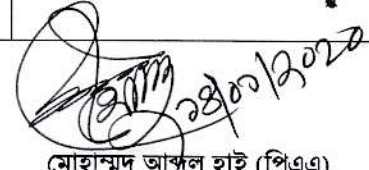 ১৪/০১/২০২০
মোহাম্মদ আব্দুল হাই (পিএএ)